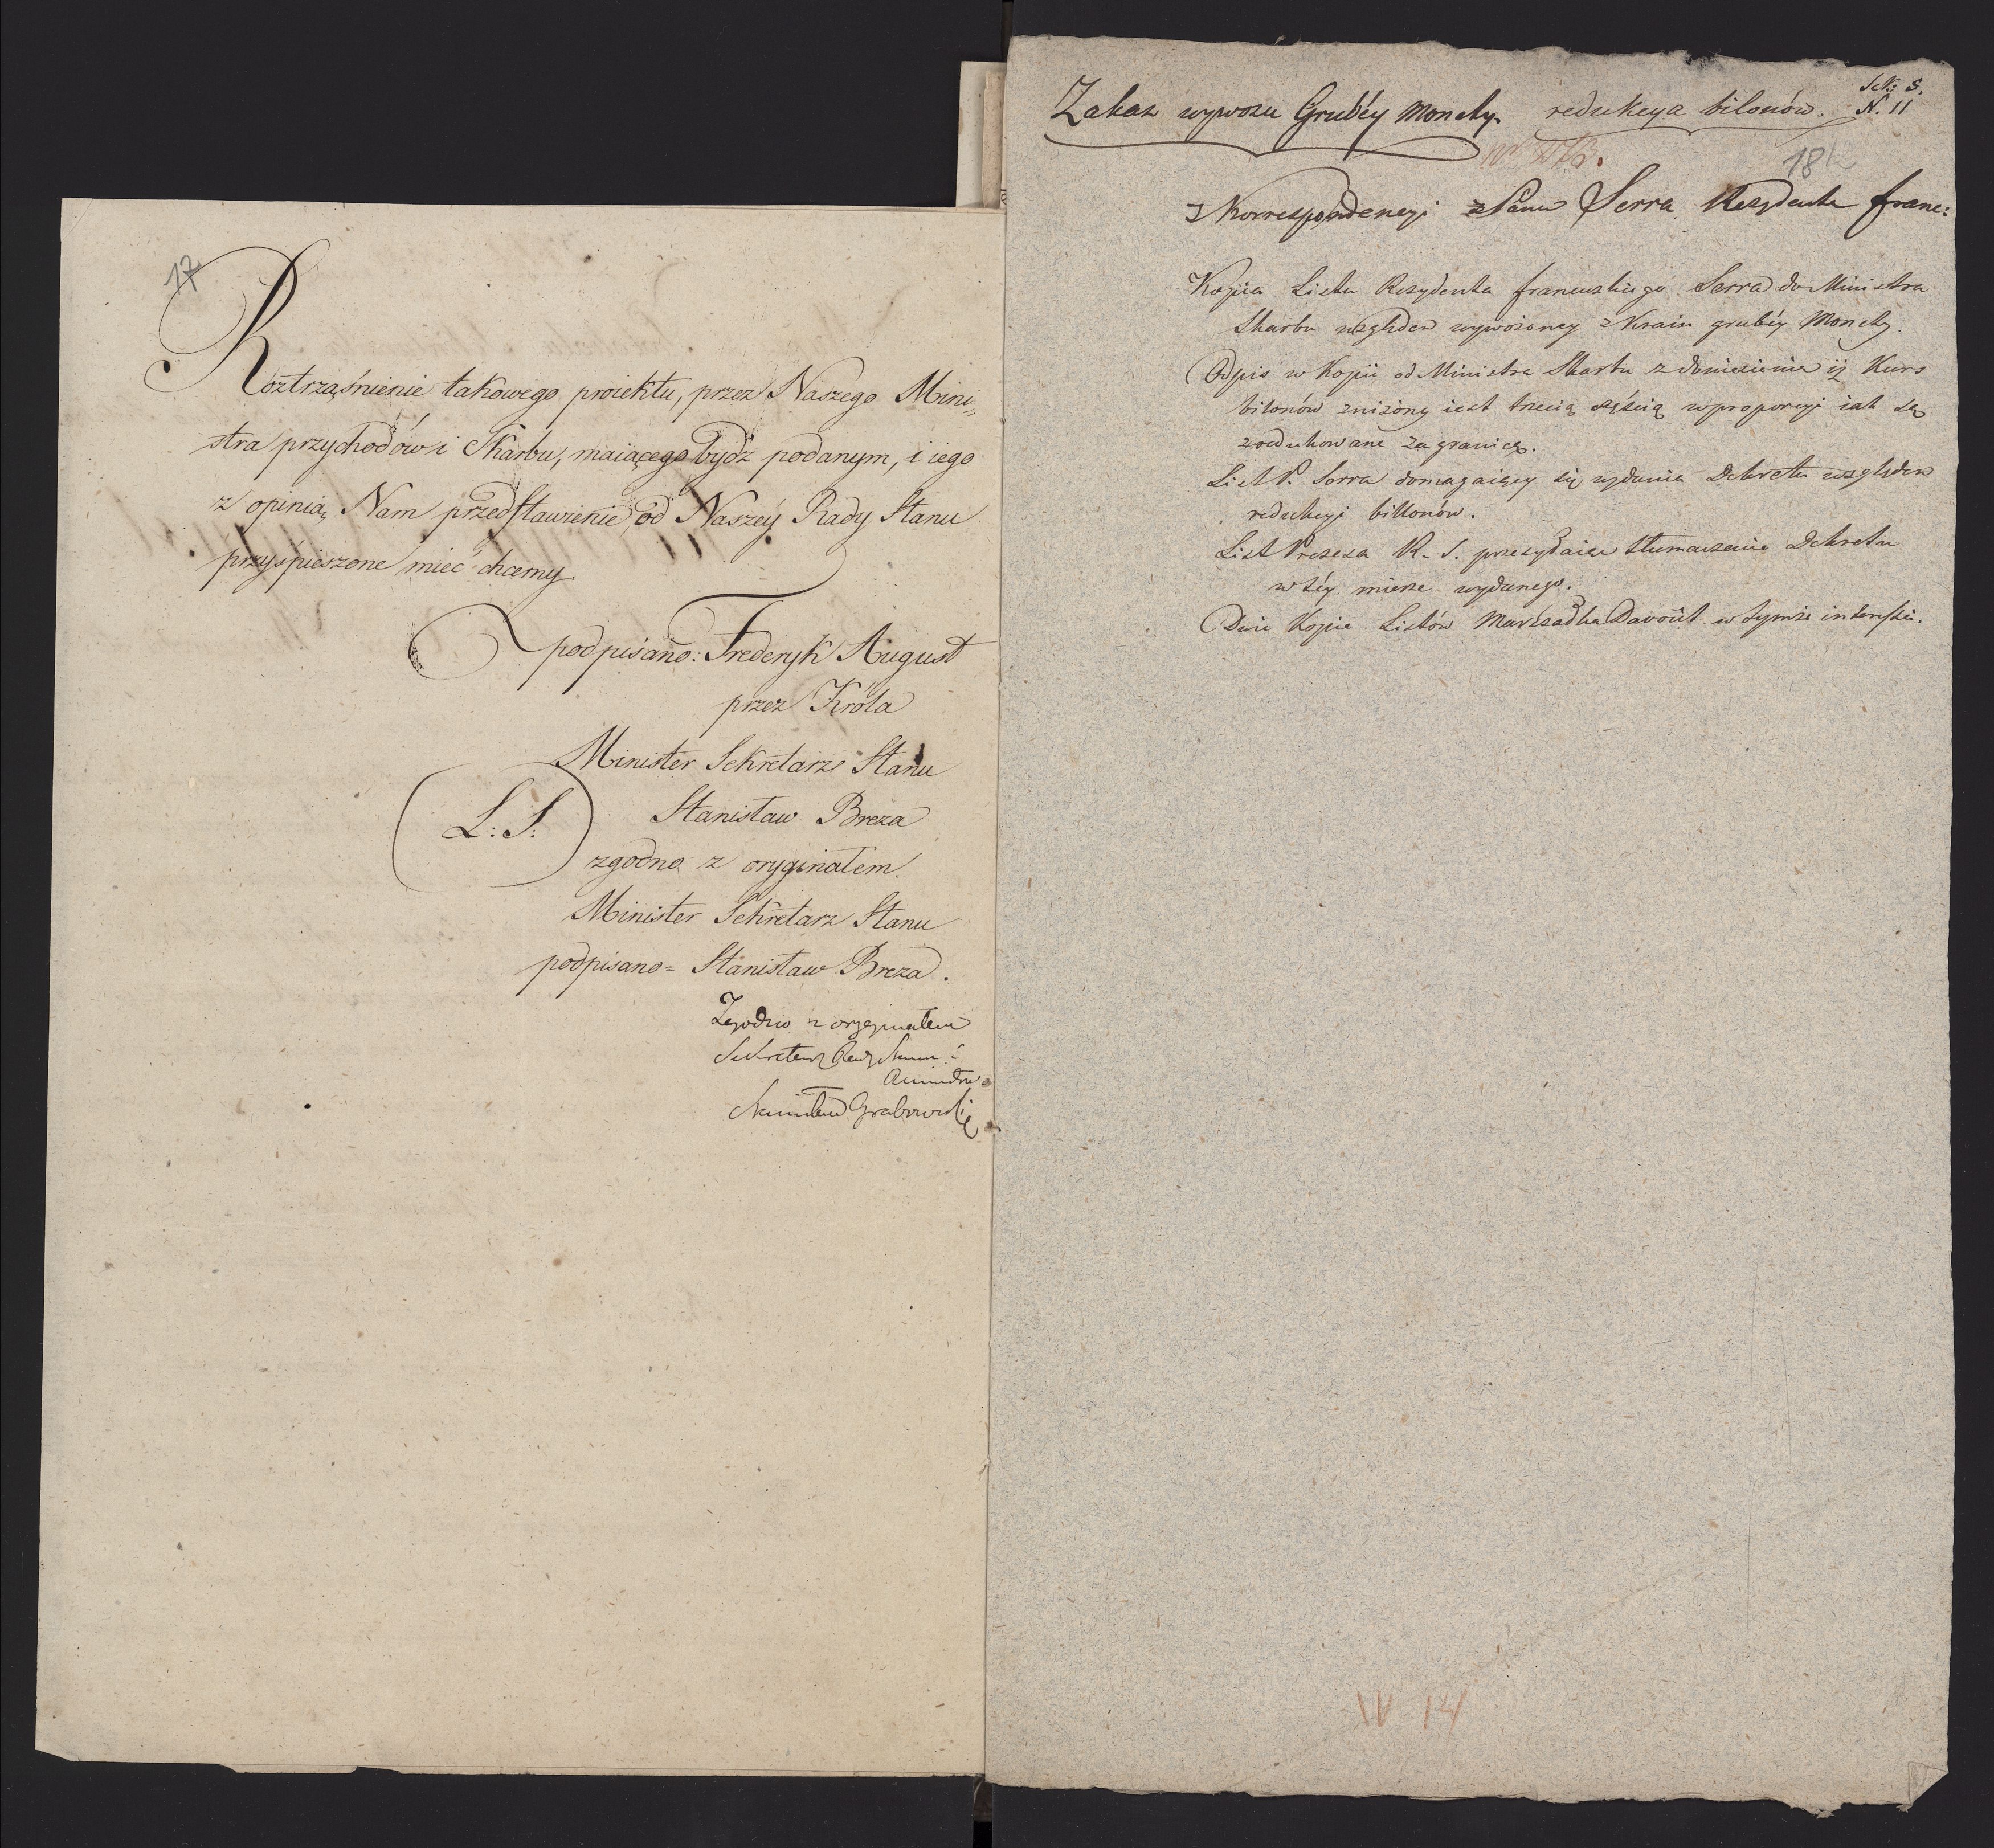 17
Roztrząśnienie takowego proiektu, przez Naszego Mini-
stra przychodów i Skarbu, maiącego bydź podanym, i iego
z opinią Nam przedstawienie, od Naszéy Rady Stanu
przyśpieszone mieć chcemy.
podpisano: Frederyk August
przez Króla
Minister Sekretarz Stanu
L: S: Stanisław Breza
zgodno z oryginałem
Minister Sekretarz Stanu
podpisano = Stanisław Breza.
Zgodno z oryginałem
Sekretarz Rady Stanu i
Ministrów
Stanisław Grabowski
Sek: 5.
Zakaz wywozu Grubéy Monety. redukcya bilonów. N. 11
18
z Korrespondencyi z Panem Serra Rezydenta franc:
Kopia Listu Rezydenta francuzkiego Serra do Ministra
Skarbu względem wywożoney z Kraiu grubéy Monety.
Odpis w Kopii od Ministra Skarbu z doniesieniem iż Kurs
bilonów zniżony iest trzecią częścią w proporcyi iak są
zredukowane za granicą.
List P. Serra domagaiący się wydania Dekretu względem
redukcyi billonów.
List Prezesa R. S. przesyłaiący tłumaczenie Dekretu
w téy mierze wydanego.
Dwie Kopie Listów Marszałka Davoût w tymże interessie.
IV 14